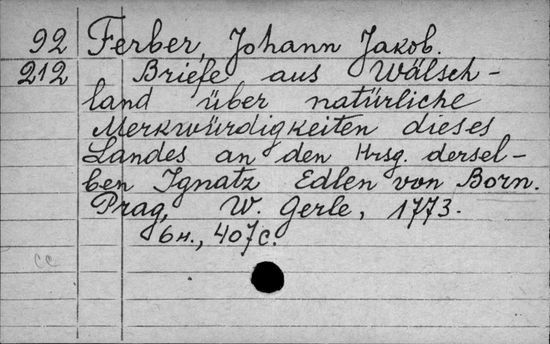 92 Ferber, Johann Jakob.
212 Briefe aus Wälsch-
land über natürliche
Merkwürdigkeiten dieses
Landes an den Hrsg. dersel-
ben Ignatz Edlen von Born.
Prag, W. Gerle, 1773.
6 н., 407 с.
cc